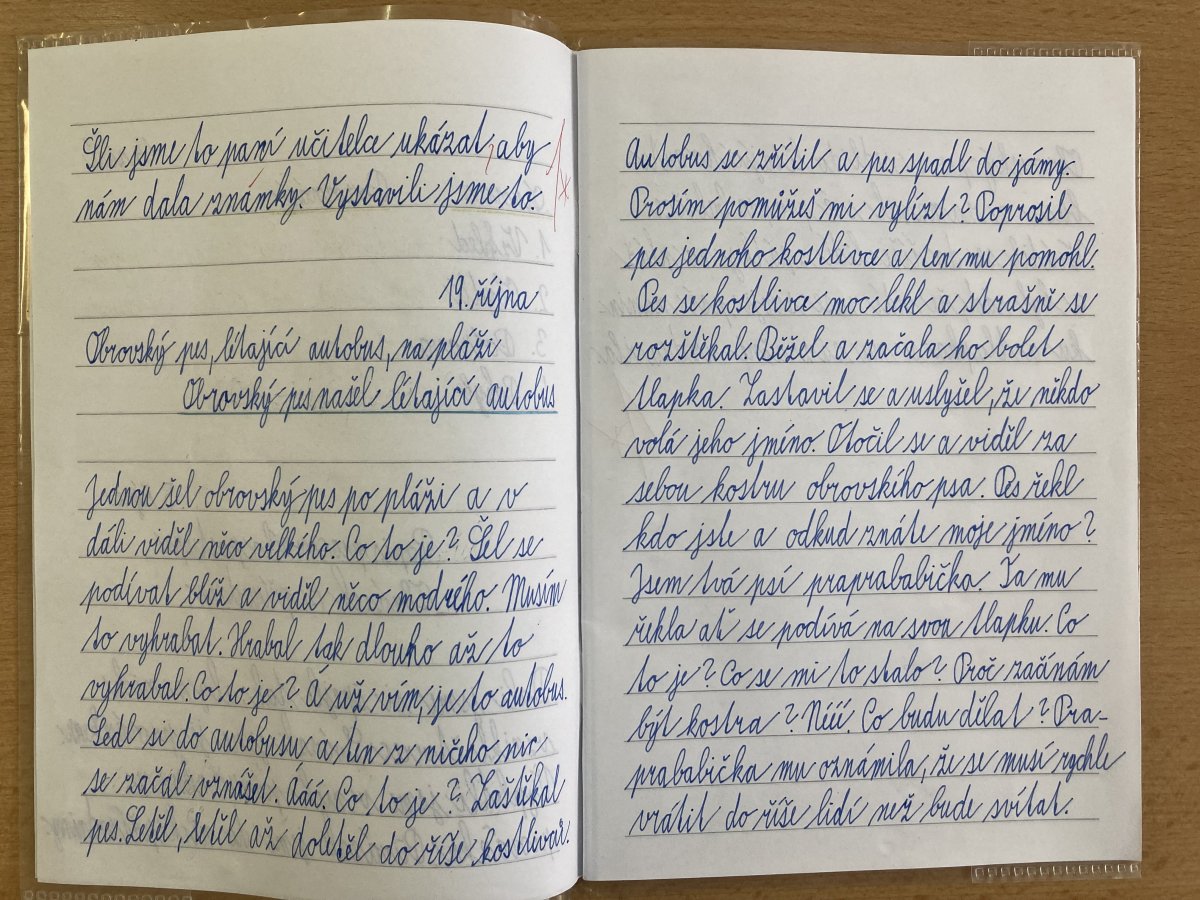 Šli jsme to paní učitelce ukázat, aby
nám dala známky. Vystavili jsme to.
19. října
Obrovský pes, létající autobus, na pláži
Obrovský pes našel létající autobus
Jednou šel obrovský pes po pláži a v
dáli viděl něco velkého. Co to je? Šel se
podívat blíž a viděl něco modrého. Musím
to vyhrabat. Hrabal tak dlouho až to
vyhrabal. Co to je? Á už vím, je to autobus.
Sedl si do autobusu a ten z ničeho nic
se začal vznášet. Ááá. Co to je? Zaštěkal
pes. Letěl, letěl až doletěl do říše kostlivců.
Autobus se zřítil a pes spadl do jámy.
Prosím pomůžeš mi vylízt? Poprosil
pes jednoho kostlivce a ten mu pomohl.
Pes se kostlivce moc lekl a strašně se
rozštěkal. Běžel a začala ho bolet
tlapka. Zastavil se a uslyšel, že někdo
volá jeho jméno. Otočil se a viděl za
sebou kostru obrovského psa. Pes řekl
kdo jste a odkud znáte moje jméno?
Jsem tvá psí praprababička. Ta mu
řekla ať se podívá na svou tlapku. Co
to je? Co se mi to stalo? Proč začínám
být kostra? Nééé. Co budu dělat? Pra-
prababička mu oznámila, že se musí rychle
vrátit do říše lidí než bude svítat.